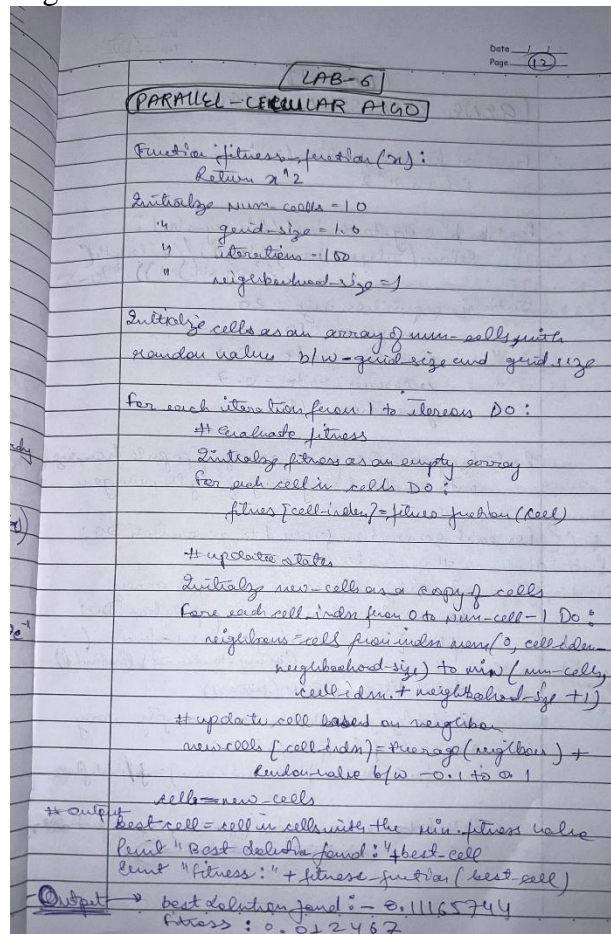 Date / /
Page 12
LAB-6
PARALLEL-CELLULAR ALGO
Function fitness-function (x):
Return x^2
Initialize num-cells = 10
" grid-size = 1.0
" iterations = 100
" neighborhood-size = 1
Initialize cells as an array of num-cells with
random value b/w -grid size and grid size
for each iteration from 1 to DO:
# Evaluate fitness
Initialize fitness as an empty array
For each cell in cells DO:
fitnes [cell-index] = fitness-function (cell)
# update states
Initialize new-cells as a copy of cells
For each cell-index from 0 to num-cell-1 Do:
neighbours = cells from index max(0, cell-index-
neighborhood-size) to min (num-cells,
cell-index + neighborhood-size +1)
# update cell based on neighbor
new cells [cell-index] = Average (neighbors) +
Random-value b/w -0.1 to 0.1
cells = new-cells
# Output
best cell = cell in cells with the min. fitness value
Print "Best solution found:" + best-cell
Print "Fitness:" + fitness-function (best-cell)
Output → best solution found: - 0.11165744
Fitness : 0.012467